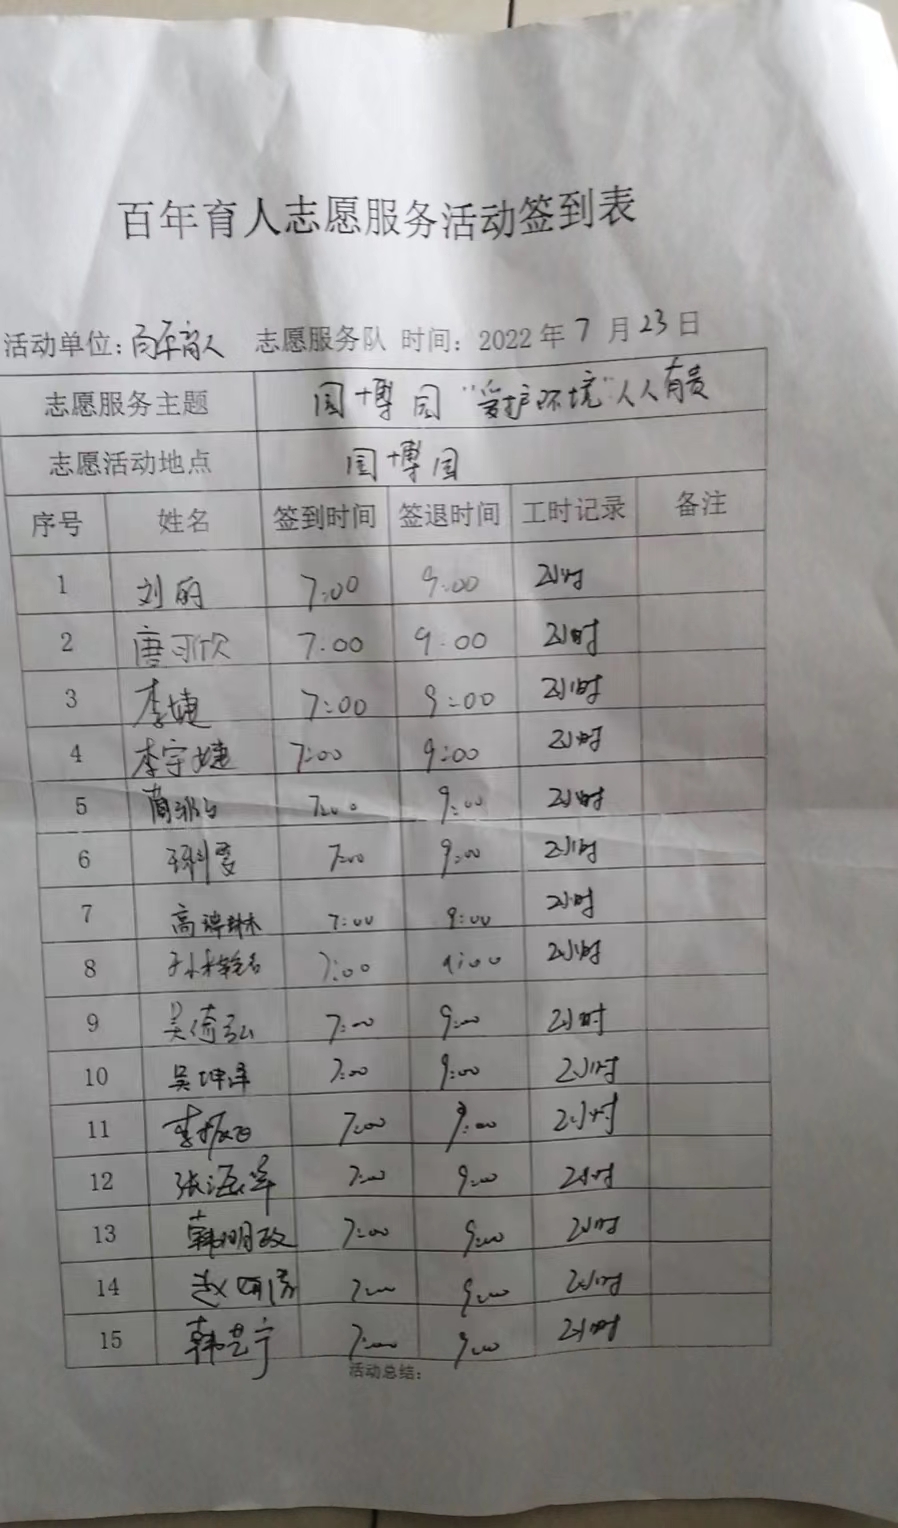 百年育人志愿服务活动签到表
活动单位：百年育人 志愿服务队 时间：2022年7月23日
志愿服务主题 园博园“爱护环境”人人有责
志愿活动地点 园博园
序号 姓名 签到时间 签退时间 工时记录 备注
1 刘丽 7:00 9:00 2小时
2 唐可欣 7:00 9:00 2小时
3 李婕 7:00 9:00 2小时
4 李宇婕 7:00 9:00 2小时
5 7:00 9:00 2小时
6 7:00 9:00 2小时
7 高琳 7:00 9:00 2小时
8 7:00 9:00 2小时
9 吴倚弘 7:00 9:00 2小时
10 吴坤泽 7:00 9:00 2小时
11 李振 7:00 9:00 2小时
12 张海军 7:00 9:00 2小时
13 韩明政 7:00 9:00 2小时
14 赵 7:00 9:00 2小时
15 韩艺宁 7:00 9:00 2小时
活动总结：